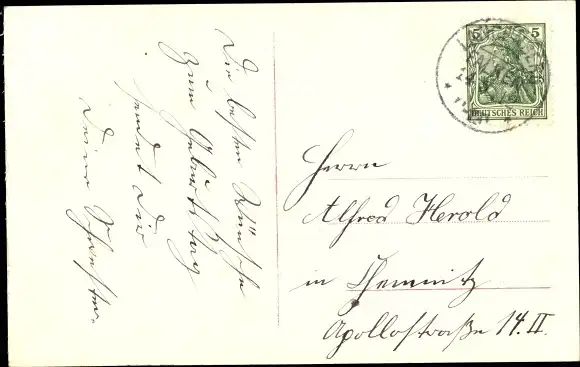 Die besten Wünsche
zum Geburtstag
sendet Dir
Deine Schwester.
5 5
DEUTSCHES REICH
Herrn
Alfred Herold
in Chemnitz
Apollostraße 14. II.